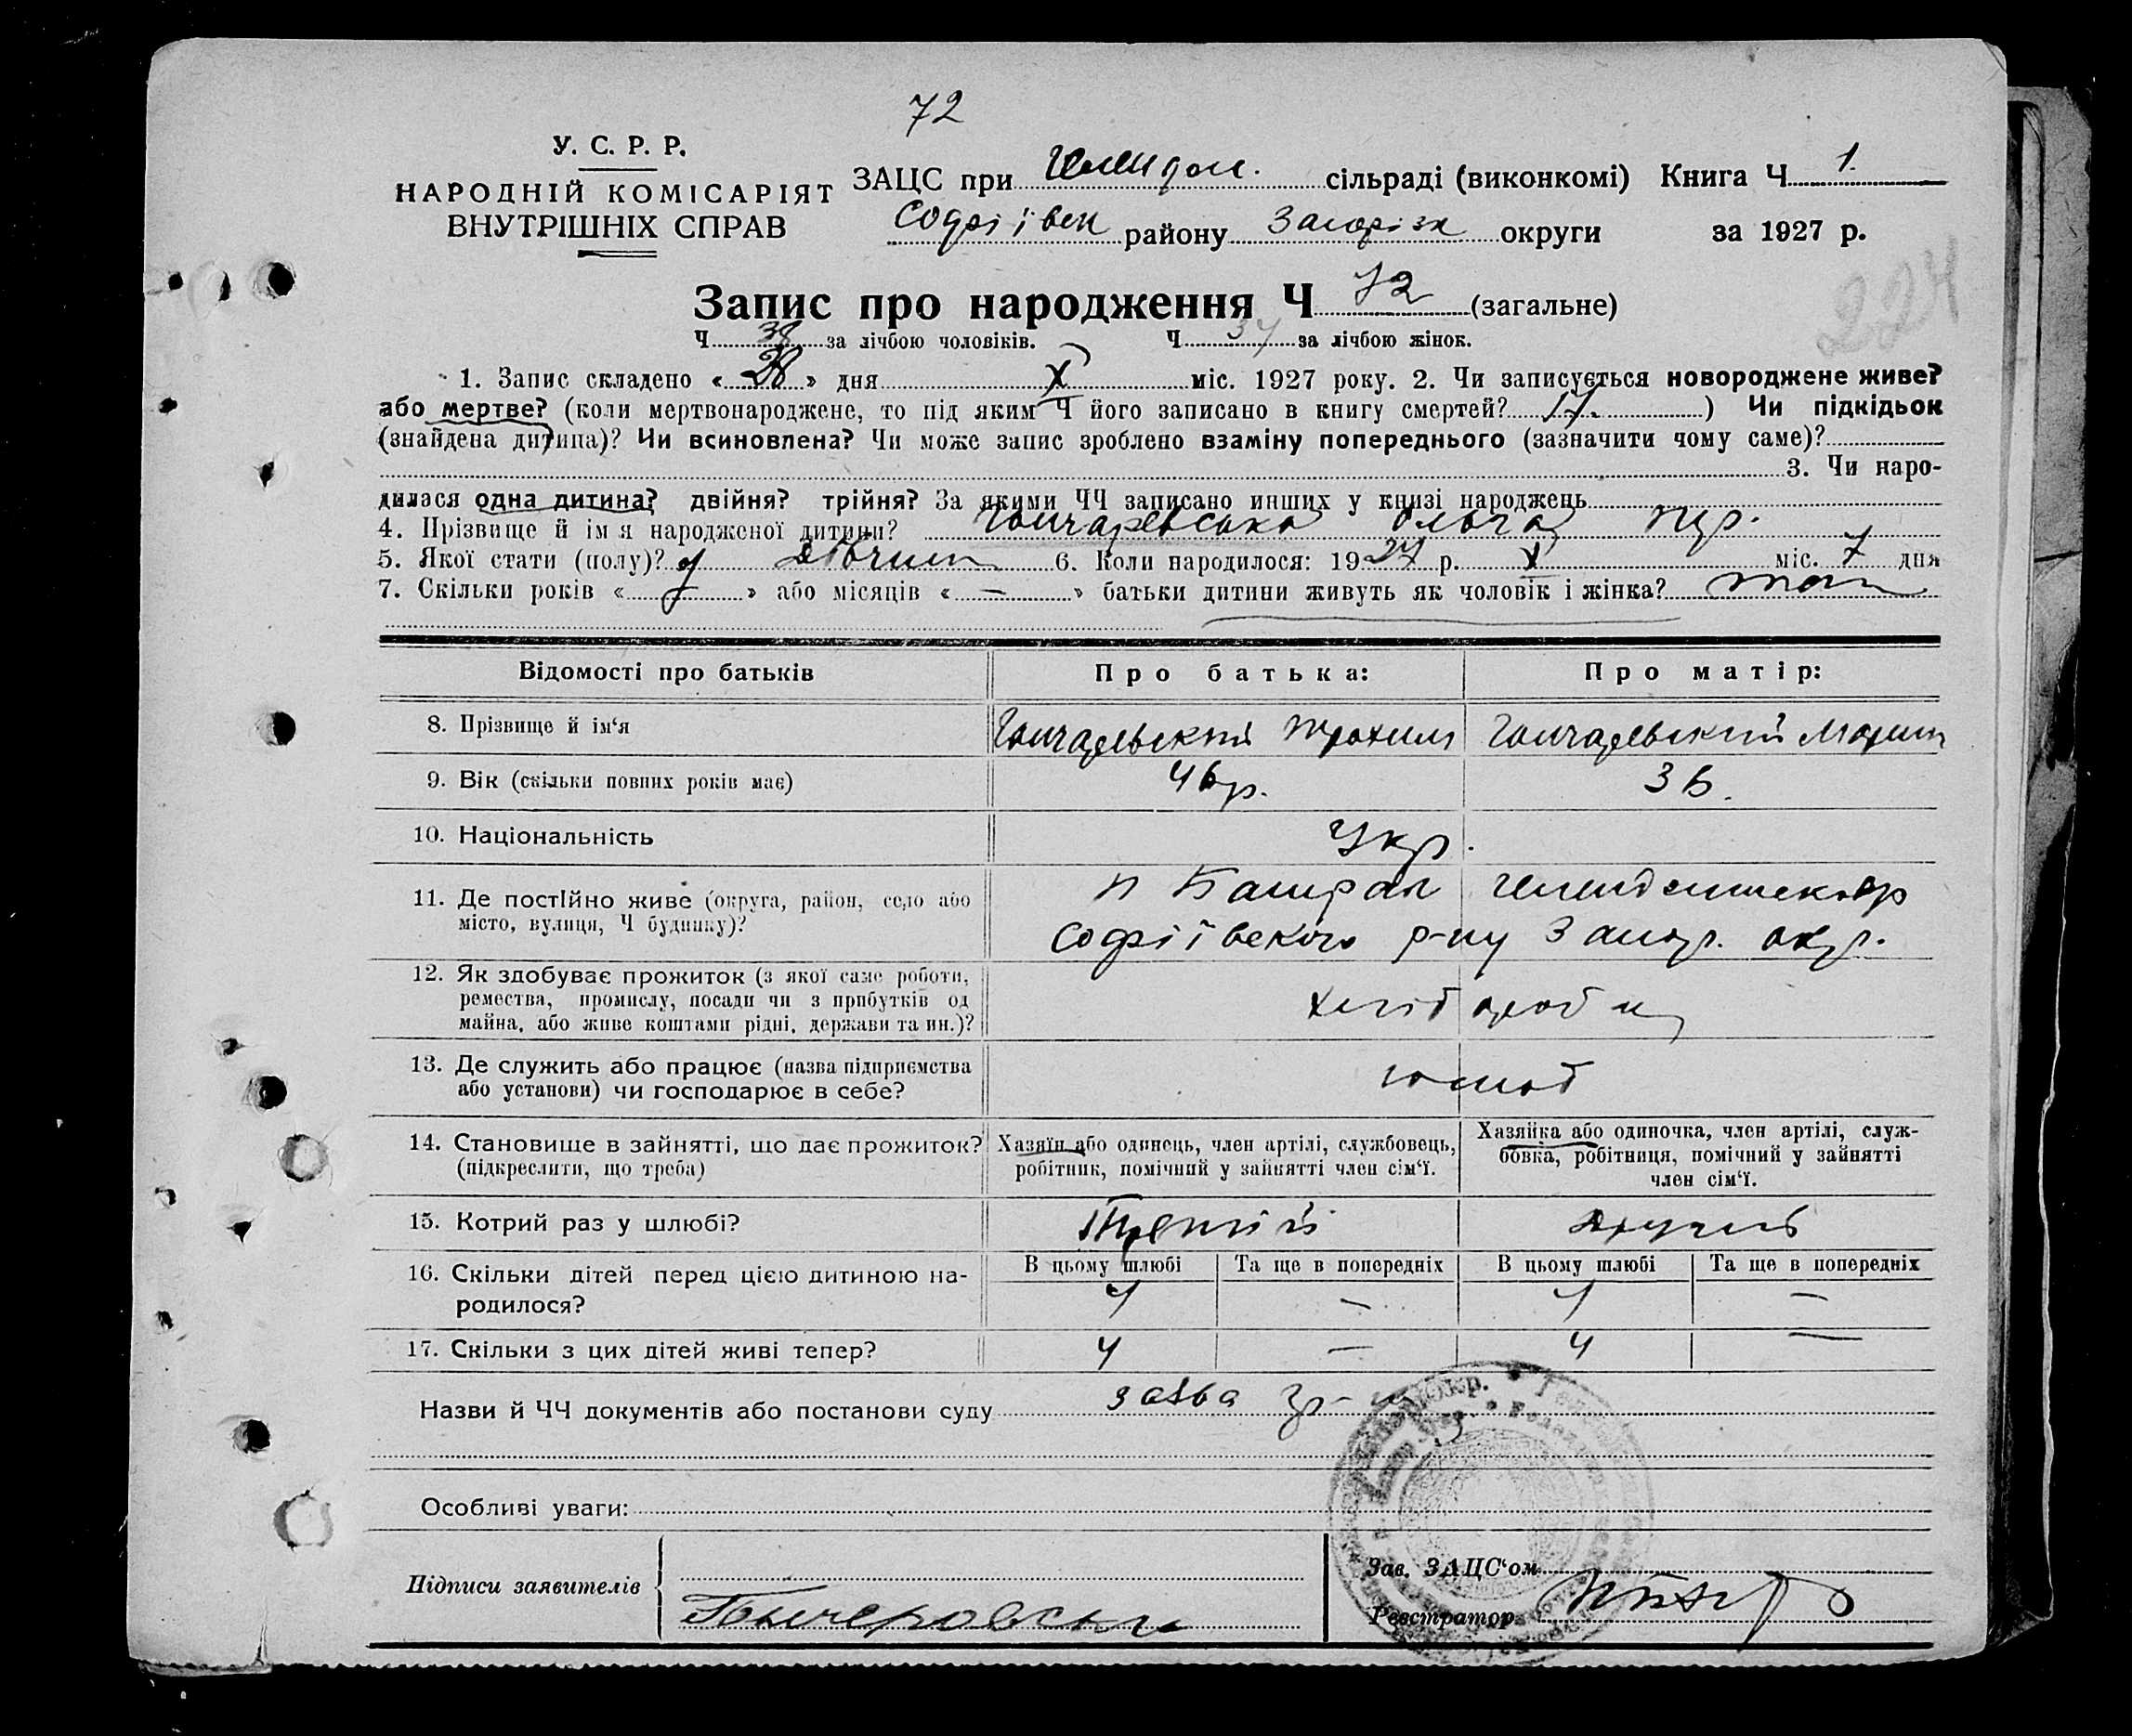 72
У. С. Р. Р.
НАРОДНІЙ КОМІСАРІЯТ
ВНУТРІШНІХ СПРАВ
ЗАЦС при сільраді (виконкомі) Книга Ч 1.
Софіївськ району Запоріж округи за 1927 р.
224
Запис про народження Ч 72 (загальне)
Ч за лічбою чоловіків. Ч 37 за лічбою жінок.
1. Запис складено « » дня X міс. 1927 року. 2. Чи записується новороджене живе?
або мертве? (коли мертвонароджене, то під яким Ч його записано в книгу смертей? ) Чи підкідьок
(знайдена дитина)? Чи всиновлена? Чи може запис зроблено взаміну попереднього (зазначити чому саме)?
3. Чи наро-
дилася одна дитина? двійня? трійня? За якими ЧЧ записано инших у книзі народжень
4. Прізвище й ім'я народженої дитини? Гончаревська Ольга Тр.
5. Якої стати (полу)? дівчин 6. Коли народилося: 1927 р. X міс. 7 дня
7. Скільки років « » або місяців « — » батьки дитини живуть як чоловік і жінка? так
Відомості про батьків Про батька: Про матір:
8. Прізвище й ім'я Гончаревський Трохим Гончаревський Марин
9. Вік (скільки повних років має) 46 р. 36.
10. Національність Укр.
11. Де постійно живе (округа, район, село або
місто, вулиця, Ч будинку)?
Софіївського р-ну Запор. окр.
12. Як здобуває прожиток (з якої саме роботи,
ремества, промислу, посади чи з прибутків од
майна, або живе коштами рідні, держави та ин.)?
хлібороби
13. Де служить або працює (назва підприємства
або установи) чи господарює в себе?
14. Становище в зайнятті, що дає прожиток?
(підкреслити, що треба)
Хазяїн або одинець, член артілі, службовець,
робітник, помічний у зайнятті член сім'ї.
Хазяйка або одиночка, член артілі, служ-
бовка, робітниця, помічний у зайнятті
член сім'ї.
15. Котрий раз у шлюбі? Третій другий
16. Скільки дітей перед цією дитиною на-
родилося?
В цьому шлюбі Та ще в попередніх В цьому шлюбі Та ще в попередніх
4 — 4 —
17. Скільки з цих дітей живі тепер? 4 — 4 —
Назви й ЧЧ документів або постанови суду заява гр-н
Особливі уваги:
Підписи заявителів
Зав. ЗАЦС'ом
Реєстратор